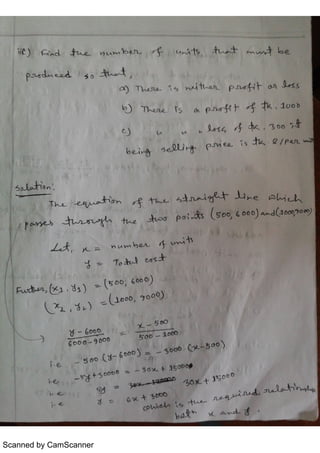 iii) Find the number of units that must be
produced so that,
a) There is neither profit or loss
b) There is a profit of tk. 1000
c) " " " loss of tk. 300 if
being selling price is tk 8/per unit
Solation:
The equation of the straight line which
passes through the two points (500, 6000) and (1000, 9000)
Let, x = number of units
y = Total cost
Further, (x₁, y₁) = (500, 6000)
(x₂, y₂) = (1000, 9000)
y - 6000 / 6000 - 9000 = x - 500 / 500 - 1000
i.e -500 (y - 6000) = -3000 (x - 500)
i.e -5y + 30000 = -30x + 15000
i.e 5y = 30x + 15000
i.e y = 6x + 3000
which is the required relationship
both x and y.
Scanned by CamScanner